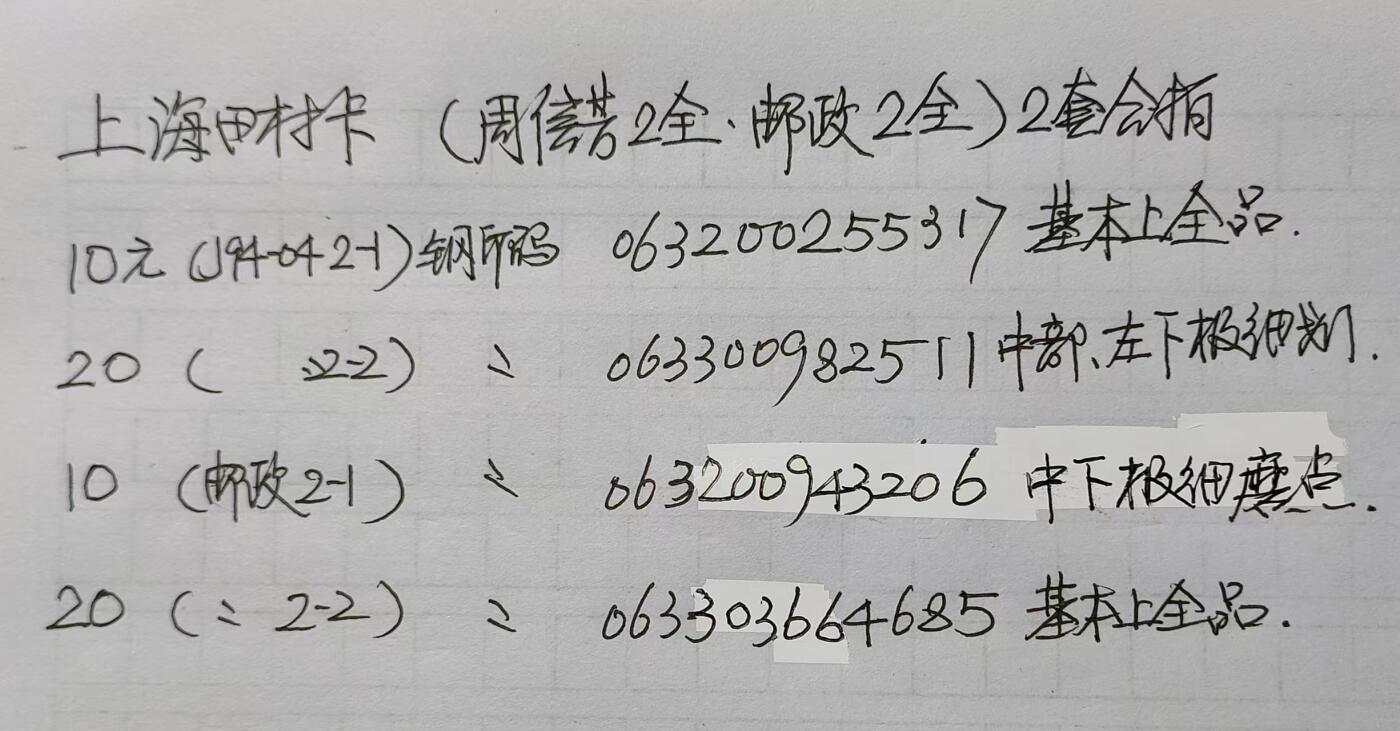 上海田村卡 (周信芳2全、邮政2全) 2套合拍
10元 (J94-04 2-1) 钢印码 063200255317 基本上全品.
20 ( 、2-2) 〃 063300982511 中部、左下极细划.
10 (邮政2-1) 〃 063200943206 中下极细磨点.
20 (〃 2-2) 〃 063303664685 基本上全品.